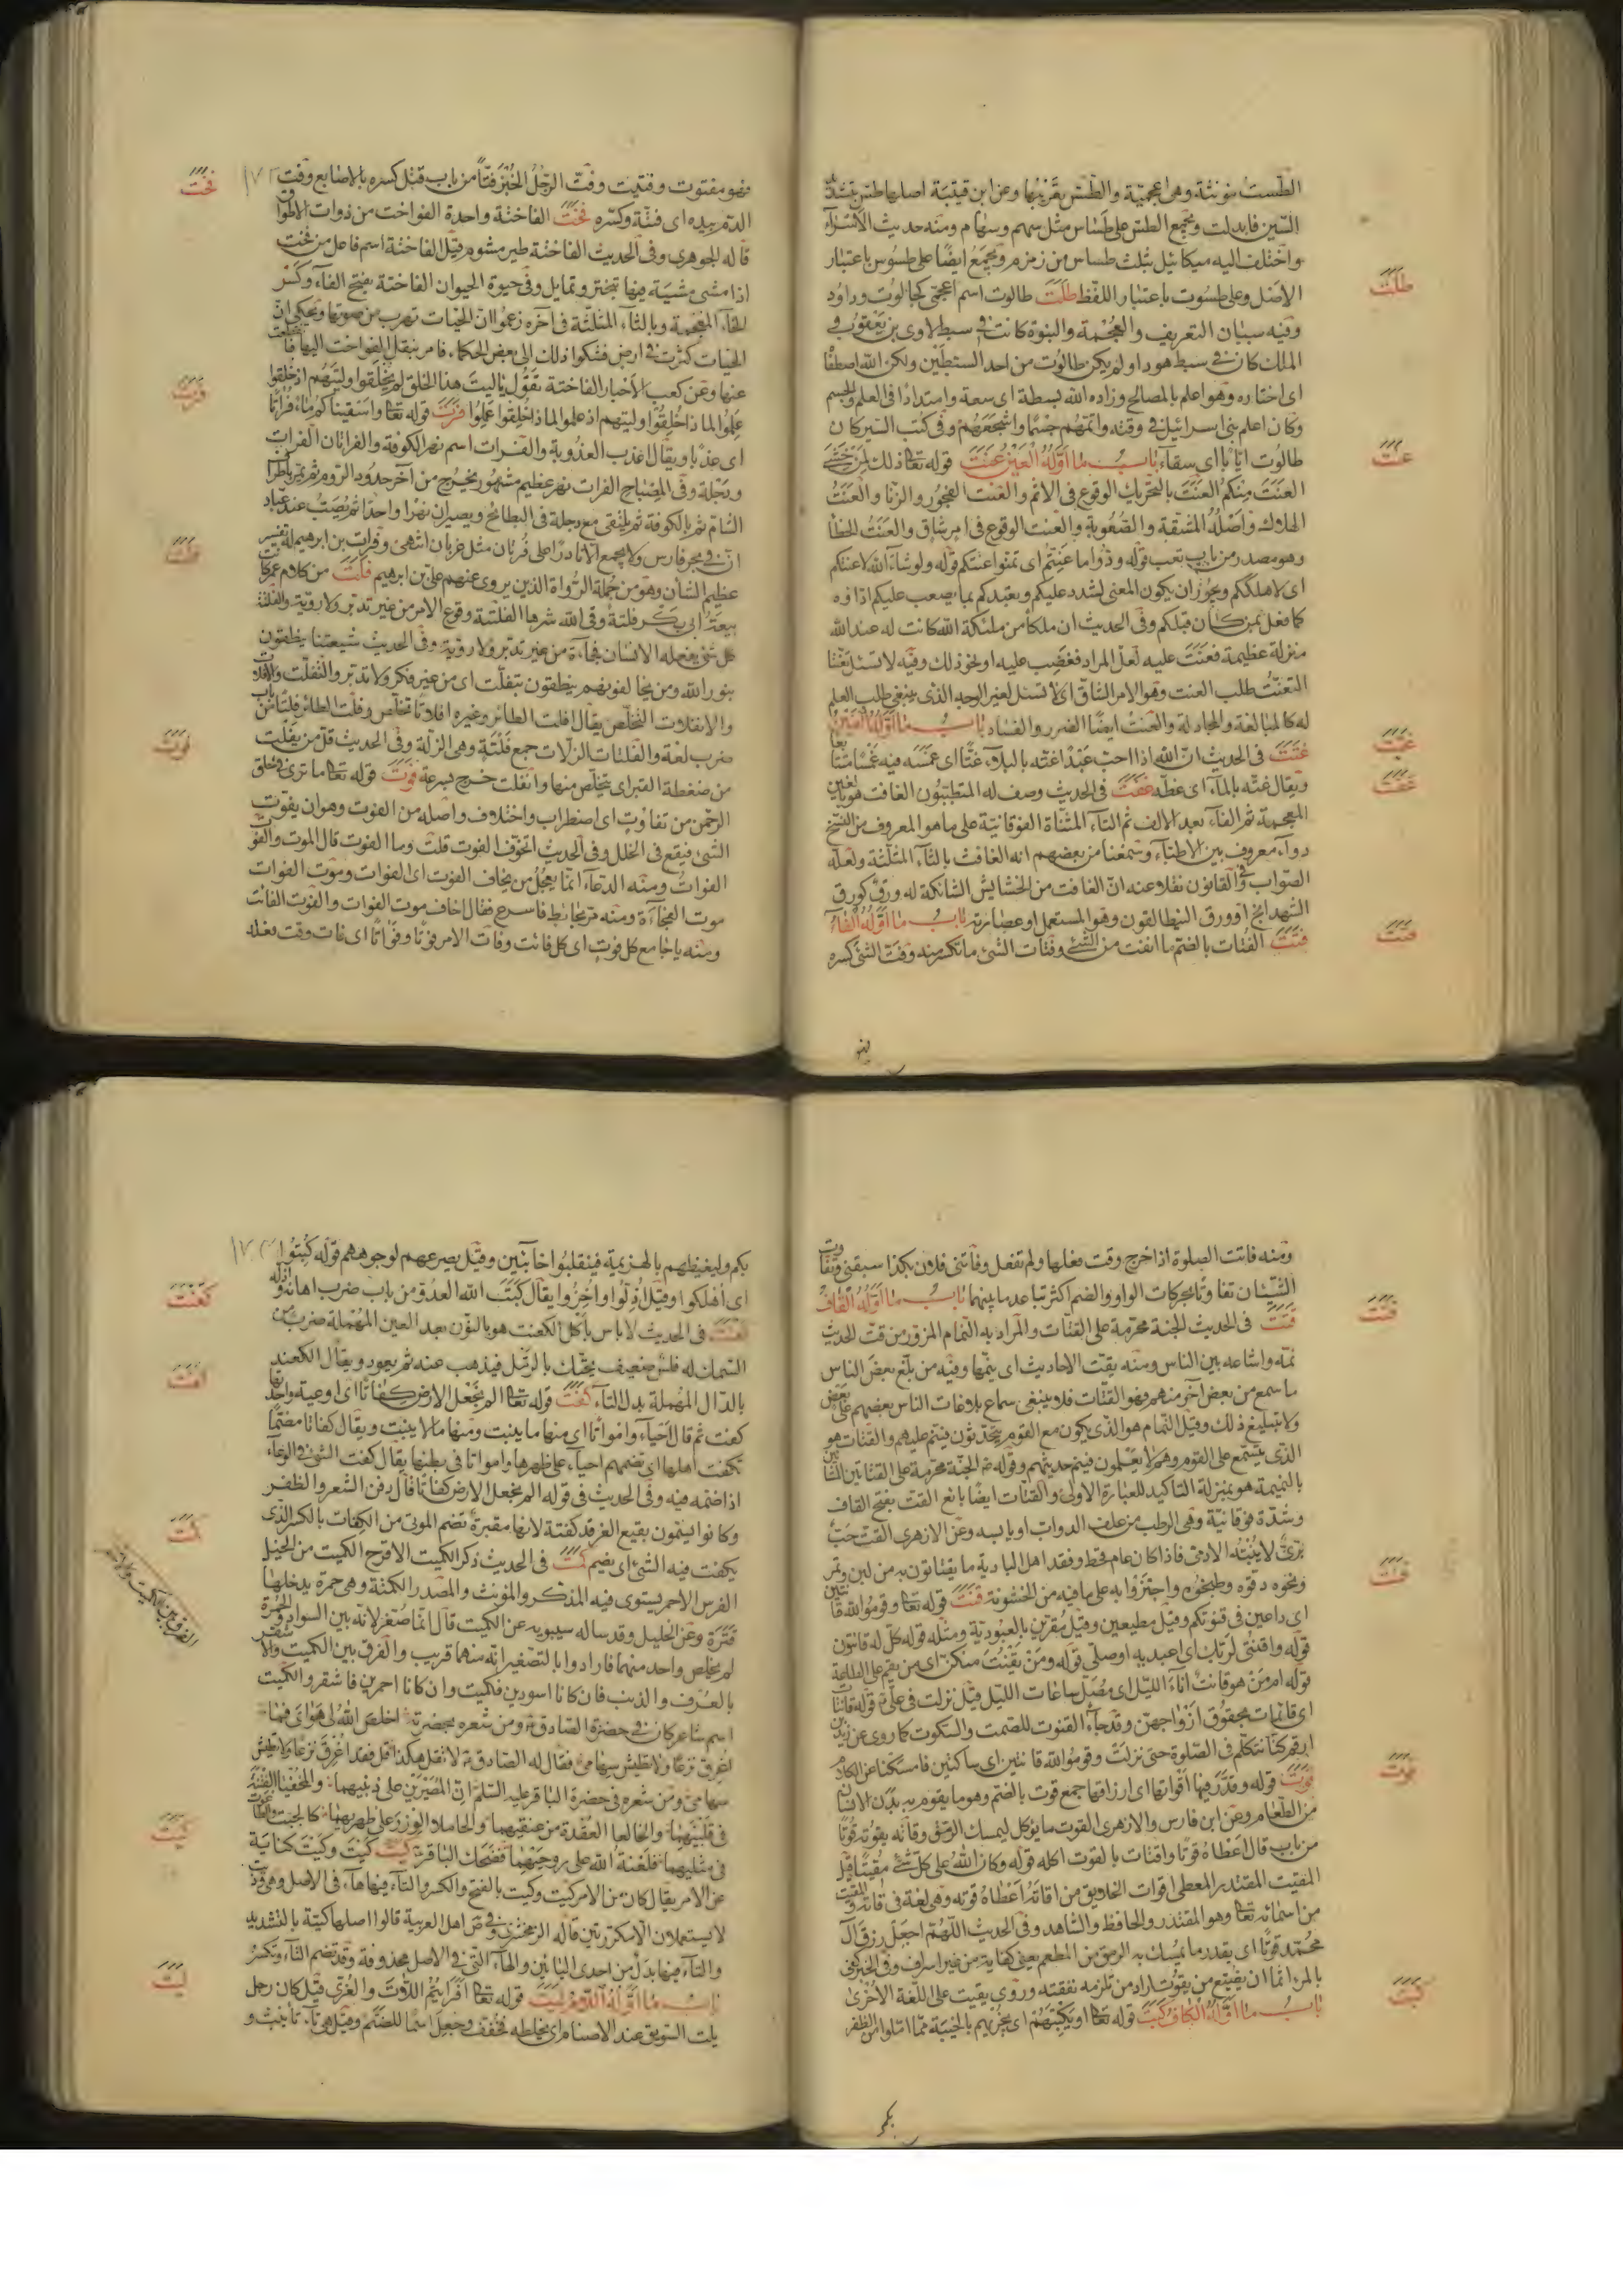 الطست مؤنثة وهى اعجمية والطس بقربها وعن ابن قتيبة اصلها طس
السين فابدلت ويجمع الطس على طساس مثل سهم وسهام ومنه حديث الاسراء
واختلف اليه ميكائيل بثلث طساس من زمزم ويجمع ايضا على طسوس باعتبار
الاصل وعلى طسوت باعتبار اللفظ طلت طالوت اسم اعجمى كجالوت وداود
وفيه سببان التعريف والعجمة والنبوة كانت فى سبط لاوى بن يعقوب و
الملك كان فى سبط يهودا ولم يكن طالوت من احد السبطين ولكن الله اصطفا
اى اختاره وهو اعلم بالمصالح وزاده الله بسطة اى سعة وامتدادا فى العلم والجسم
وكان اعلم بنى اسرائيل فى وقته واتمهم جسما واشجعهم وفى كتب السير كان
طالوت ايابا اى سقاء باب ما اوله العين عنت قوله تعا ذلك لمن خشى
العنت منكم العنت بالتحريك الوقوع فى الاثم والعنت الفجور والزنا والعنت
الهلاك واصله المشقة والصعوبة والعنت الوقوع فى امر شاق والعنت الخطأ
وهو مصدر من باب تعب قوله ودوا ما عنتم اى تمنوا عنتكم قوله ولو شاء الله لاعنتكم
اى لاهلككم ويجوز ان يكون المعنى لشدد عليكم وتعبدكم بما يصعب عليكم اداؤه
كما فعل بمن كان قبلكم وفى الحديث ان ملكا من ملئكة الله كانت له عند الله
منزلة عظيمة فعنت عليه لعل المراد فغضب عليه او نحو ذلك وفيه لا تسئل تعنتا
التعنت طلب العنت وهو الامر الشاق اى لا تسئل لغير الوجه الذى ينبغى طلب العلم
له كالمبالغة والمجادلة والعنت ايضا الضرر والفساد باب ما اوله الغين
غتت فى الحديث ان الله اذا احب عبدا غته بالبلاء غتا اى غمسه فيه غمسا متتا
ويقال غته بالماء اى غطه غفت فى الحديث وصف له المتطببون الغافت هو بالغين
المعجمة ثم الفاء بعد الالف ثم التاء المثناة الفوقانية على ما هو المعروف من النسخ
دواء معروف بين الاطباء وسمعنا من بعضهم انه الغافث بالثاء المثلثة ولعله
الصواب وفى القانون نقلا عنه ان الغافت من الحشايش الشائكة له ورق كورق
الشهدانج او ورق النطافلون وهو المستعمل او عصارته باب ما اوله الفاء
فتت الفتات بالضم ما انفت من الشئ وفتات الشئ ما تكسر منه وفت الشئ كسره
طلت
عنت
غتت
غفت
فتت
فهو مفتوت وفتيت وفت الرجل الخبز فتا من باب قتل كسره بالاصابع وفت
الدم بيده اى فته وكسره فخت الفاختة واحدة الفواخت من ذوات الاطواق
قاله الجوهرى وفى الحديث الفاختة طير مشوم قيل الفاختة اسم فاعل من فخت
اذا مشى مشية فيها تبختر وتمايل وفى حيوة الحيوان الفاختة بفتح الفاء وكسر
الخاء المعجمة وبالثاء المثلثة فى اخره زعموا ان الحيات تهرب من صوتها ويحكى ان
الحيات كثرت فى ارض فشكوا ذلك الى بعض الحكماء فامر بنقل الفواخت اليها فانقطعت
عنها وعن كعب الاحبار الفاختة تقول ياليت هذا الخلق لم يخلقوا وليتهم اذ خلقوا
علموا لما ذا خلقوا وليتهم اذ علموا لما ذا خلقوا عملوا فرت قوله تعا واسقيناكم ماء فراتا
اى عذبا ويقال اعذب العذوبة والفرات اسم نهر الكوفة والفراتان الفرات
ودجلة وفى المصباح الفرات نهر عظيم مشهور يخرج من آخر حدود الروم ثم يمر باطراف
الشام ثم بالكوفة ثم يلتقى مع دجلة فى البطائح ويصيران نهرا واحدا ثم يصب عند عباد
ان فى بحر فارس ولا يجمع الا نادرا على فرتان مثل غربان انتهى وفرات بن ابرهيم له تفسير
عظيم الشأن وهو من جملة الرواة الذين يروى عنهم على بن ابرهيم فلت من كلام عمر كانت
بيعة ابى بكر فلتة وقى الله شرها الفلتة وقوع الامر من غير تدبر ولا روية والفلتة
كل شئ يفعله الانسان فجأة من غير تدبر ولا روية وفى الحديث شيعتنا ينطقون
بنور الله ومن يخالفونهم ينطقون بتفلت اى من غير فكر ولا تدبر والتفلت والافلات
والانفلات التخلص يقال افلت الطائر وغيره افلاتا تخلص وفلت الطائر فلتا من باب
ضرب لغة والفلتات الزلات جمع فلتة وهى الزلة وفى الحديث قل من يفلت
من ضغطة القبر اى يتخلص منها وانفلت خرج بسرعة فوت قوله تعا ما ترى فى خلق
الرحمن من تفاوت اى اضطراب واختلاف واصله من الفوت وهو ان يفوت
الشئ فيقع فى الخلل وفى الحديث اتخوف الفوت قلت وما الفوت قال الموت والفوت
الفوات ومنه الدعاء انما يعجل من يخاف الفوت اى الفوات وموت الفوات
موت الفجاءة ومنه مر بحائط فاسرع فقال اخاف موت الفوات والفوت الفائت
ومنه يا جامع كل فوت اى كل فائت وفات الامر فوتا وفواتا اى فات وقت فعله
فخت
فرت
فلت
فوت
ومنه فاتت الصلوة اذا خرج وقت فعلها ولم تفعل وفاتنى فلان بكذا سبقنى وتفاوت
الشيئان تفاوتا بحركات الواو والضم اكثر تباعد ما بينهما باب ما اوله القاف
قتت فى الحديث الجنة محرمة على القتات والمراد به النمام المزور من قت الحديث
نمه واشاعه بين الناس ومنه يقت الاحاديث اى ينمها وفيه من بلغ بعض الناس
ما سمع من بعض آخر منهم فهو القتات فلا ينبغى سماع بلاغات الناس بعضهم على بعض
ولا تبليغ ذلك وقيل النمام هو الذى يكون مع القوم يتحدثون فينم عليهم والقتات هو
الذى يتسمع على القوم وهم لا يعلمون فينم حديثهم وقوله الجنة محرمة على القتاتين
بالنميمة هو بمنزلة التاكيد للعبارة الاولى والقتات ايضا بائع القت بفتح القاف
وشدة فوقانية وهى الرطب من علف الدواب او يابسه وعن الازهرى القت حب
برى لا ينبته الادمى فاذا كان عام قحط وفقد اهل البادية ما يقتاتون به من لبن وتمر
ونحوه دقوه وطبخوه واجتزوا به على ما فيه من الخشونة قنت قوله تعا وقوموا لله قانتين
اى داعين فى قنوتكم وقيل مطيعين وقيل مقرين بالعبودية ومثله قوله كل له قانتون
قوله واقنتى لربك اى اعبديه او صلى قوله ومن يقنت منكن اى من يقم على الطاعة
قوله امن هو قانت آناء الليل اى مصل ساعات الليل قيل نزلت فى على قوله قانتات
اى قائمات بحقوق ازواجهن وقد جاء القنوت للصمت والسكوت كما روى عن زيد بن
ارقم كنا نتكلم فى الصلوة حتى نزلت وقوموا لله قانتين اى ساكتين فامسكنا عن الكلام
قوت قوله وقدر فيها اقواتها اى ارزاقها جمع قوت بالضم وهو ما يقوم به بدن الانسان
من الطعام وعن ابن فارس والازهرى القوت ما يؤكل ليمسك الرمق وقاته يقوته قوتا
من باب قال اعطاه قوتا واقتات بالقوت اكله قوله وكان الله على كل شئ مقيتا قيل
المقيت المقتدر المعطى اقوات الخلايق من اقاته اعطاه قوته وهى لغة فى قاته والمقيت
من اسمائه تعا وهو المقتدر والحافظ والشاهد وفى الحديث اللهم اجعل رزق آل
محمد قوتا اى بقدر ما يمسك به الرمق من المطعم يعنى كفاية من غير اسراف وفى الخبر كفى
بالمرء اثما ان يضيع من يقوت اراد من تلزمه نفقته وروى يقيت على اللغة الاخرى
باب ما اوله الكاف كبت قوله تعا او يكبتهم اى يخزيهم بالخيبة مما املوا من الظفر
قتت
قنت
قوت
كبت
بكم وليغيظهم بالهزيمة فينقلبوا خائبين وقيل يصرعهم لوجوههم قوله كبتوا
اى اهلكوا وقيل اذلوا واخزوا ويقال كبت الله العدو من باب ضرب اهانه واذله
كعنت فى الحديث لا باس باكل الكعنت هو بالنون بعد العين المهملة ضرب من
السمك له فلس ضعيف يحتك بالرمل فيذهب عنه ثم يعود ويقال الكعند
بالدال المهملة بدل التاء كفت قوله تعا الم نجعل الارض كفاتا اى اوعية واحدها
كفت ثم قال احياء وامواتا اى منها ما ينبت ومنها ما لا ينبت ويقال كفاتا مضما
تكفت اهلها اى تضمهم احياء على ظهرها وامواتا فى بطنها يقال كفت الشئ فى الوعاء
اذا ضمه فيه وفى الحديث فى قوله الم نجعل الارض كفاتا قال دفن الشعر والظفر
وكانوا يسمون بقيع الغرقد كفتة لانها مقبرة تضم الموتى من الكفات بالكسر الذى
يكفت فيه الشئ اى يضم كمت فى الحديث ذكر الكميت الاقرح الكميت من الخيل
الفرس الاحمر يستوى فيه المذكر والمؤنث والمصدر الكمتة وهى حمرة يدخلها
قترة وعن الخليل وقد ساله سيبويه عن الكميت قال انما صغر لانه بين السواد والحمرة
لم يخلص واحد منهما فارادوا بالتصغير انه منهما قريب والفرق بين الكميت والاشقر
بالعرف والذنب فان كانا اسودين فكميت وان كانا احمرين فاشقر والكميت
اسم شاعر كان فى حضرة الصادق ومن شعره بحضرته اخلص الله لى هواى فما
اغرق نزعا ولا تطيش سهامى فقال له الصادق لا تقل هكذا قل فقد اغرق نزعا ولا تطيش
سهامى ومن شعره فى حضرة الباقر عليه السلم ان المصرين على ذنبيهما والمخفيا الفتنة
فى قلبيهما والخالعا العقدة من عنقيهما والحاملا الوزر على ظهريهما كالجبت والطاغوت
فى مثليهما فلعنة الله على روحيهما فضحك الباقر كيت كيت وكيت كناية
عن الامر يقال كان من الامر كيت وكيت بالفتح والكسر والتاء فيها هاء فى الاصل وهى وذيت
لا يستعملان الا مكررتين قاله الزمخشرى وعن اهل العربية قالوا اصلها كية بالتشديد
والتاء فيها بدل من احدى اليائين والهاء التى فى الاصل محذوفة وقد تضم التاء وتكسر
باب ما اوله اللام ليت قوله تعا افرايتم اللات والعزى قيل كان رجل
يلت السويق عند الاصنام اى يخلطه فخفف وجعل اسما للصنم وقيل هى تاء تأنيث و
كعنت
كفت
كمت
الفرق بين الكميت والاشقر
كيت
ليت